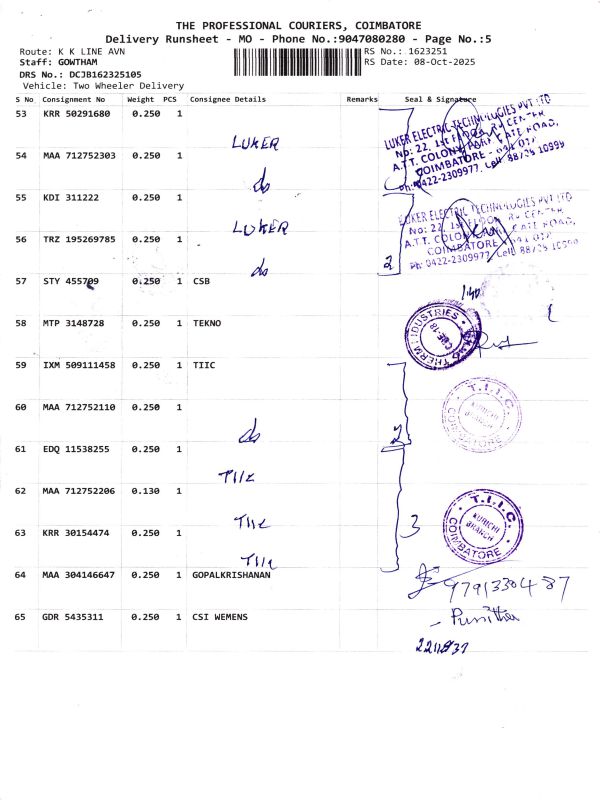 THE PROFESSIONAL COURIERS, COIMBATORE
Delivery Runsheet - MO - Phone No.:9047080280 - Page No.:5
Route: K K LINE AVN RS No.: 1623251
Staff: GOWTHAM RS Date: 08-Oct-2025
DRS No.: DCJB162325105
Vehicle: Two Wheeler Delivery
S No Consignment No Weight PCS Consignee Details Remarks Seal & Signature
53 KRR 50291680 0.250 1 LUKER
LUKER ELECTRIC TECHNOLOGIES PVT LTD
No: 22, 1st FLOOR, R
A.T.T. COLONY, GATE ROAD,
COIMBATORE - 641 017
Ph: 0422-2309977, Cell: 88705 10999
54 MAA 712752303 0.250 1 do
55 KDI 311222 0.250 1 LUKER
LUKER ELECTRIC TECHNOLOGIES PVT LTD
No: 22, 1st FLOOR, R
A.T.T. COLONY, GATE ROAD,
COIMBATORE 641 017
Ph: 0422-2309977, Cell: 88705 10999
56 TRZ 195269785 0.250 1 do 2
57 STY 455709 0.250 1 CSB
58 MTP 3148728 0.250 1 TEKNO
TEKNO THERM INDUSTRIES
CBE-18
59 IXM 509111458 0.250 1 TIIC
60 MAA 712752110 0.250 1 do 2
T.I.I.C.
KURICHI
BRANCH
COIMBATORE
61 EDQ 11538255 0.250 1 TIIC
62 MAA 712752206 0.130 1 TIIC 3
T.I.I.C.
KURICHI
BRANCH
COIMBATORE
63 KRR 30154474 0.250 1 TIIC
64 MAA 304146647 0.250 1 GOPALKRISHANAN 9791330487
65 GDR 5435311 0.250 1 CSI WEMENS - Punitha